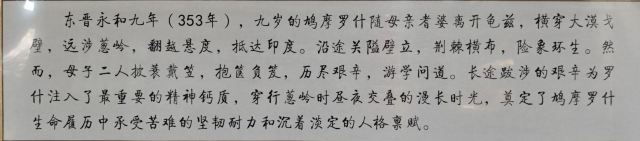 东晋永和九年（353年），九岁的鸠摩罗什随母亲耆婆离开龟兹，横穿大漠戈
壁，远涉葱岭，翻越悬度，抵达印度。沿途关隘壁立，荆棘横布，险象环生。然
而，母子二人披蓑戴笠，抱箧负笈，历尽艰辛，游学问道。长途跋涉的艰辛为罗
什注入了最重要的精神钙质，穿行葱岭时昼夜交叠的漫长时光，奠定了鸠摩罗什
生命履历中承受苦难的坚韧耐力和沉着淡定的人格禀赋。